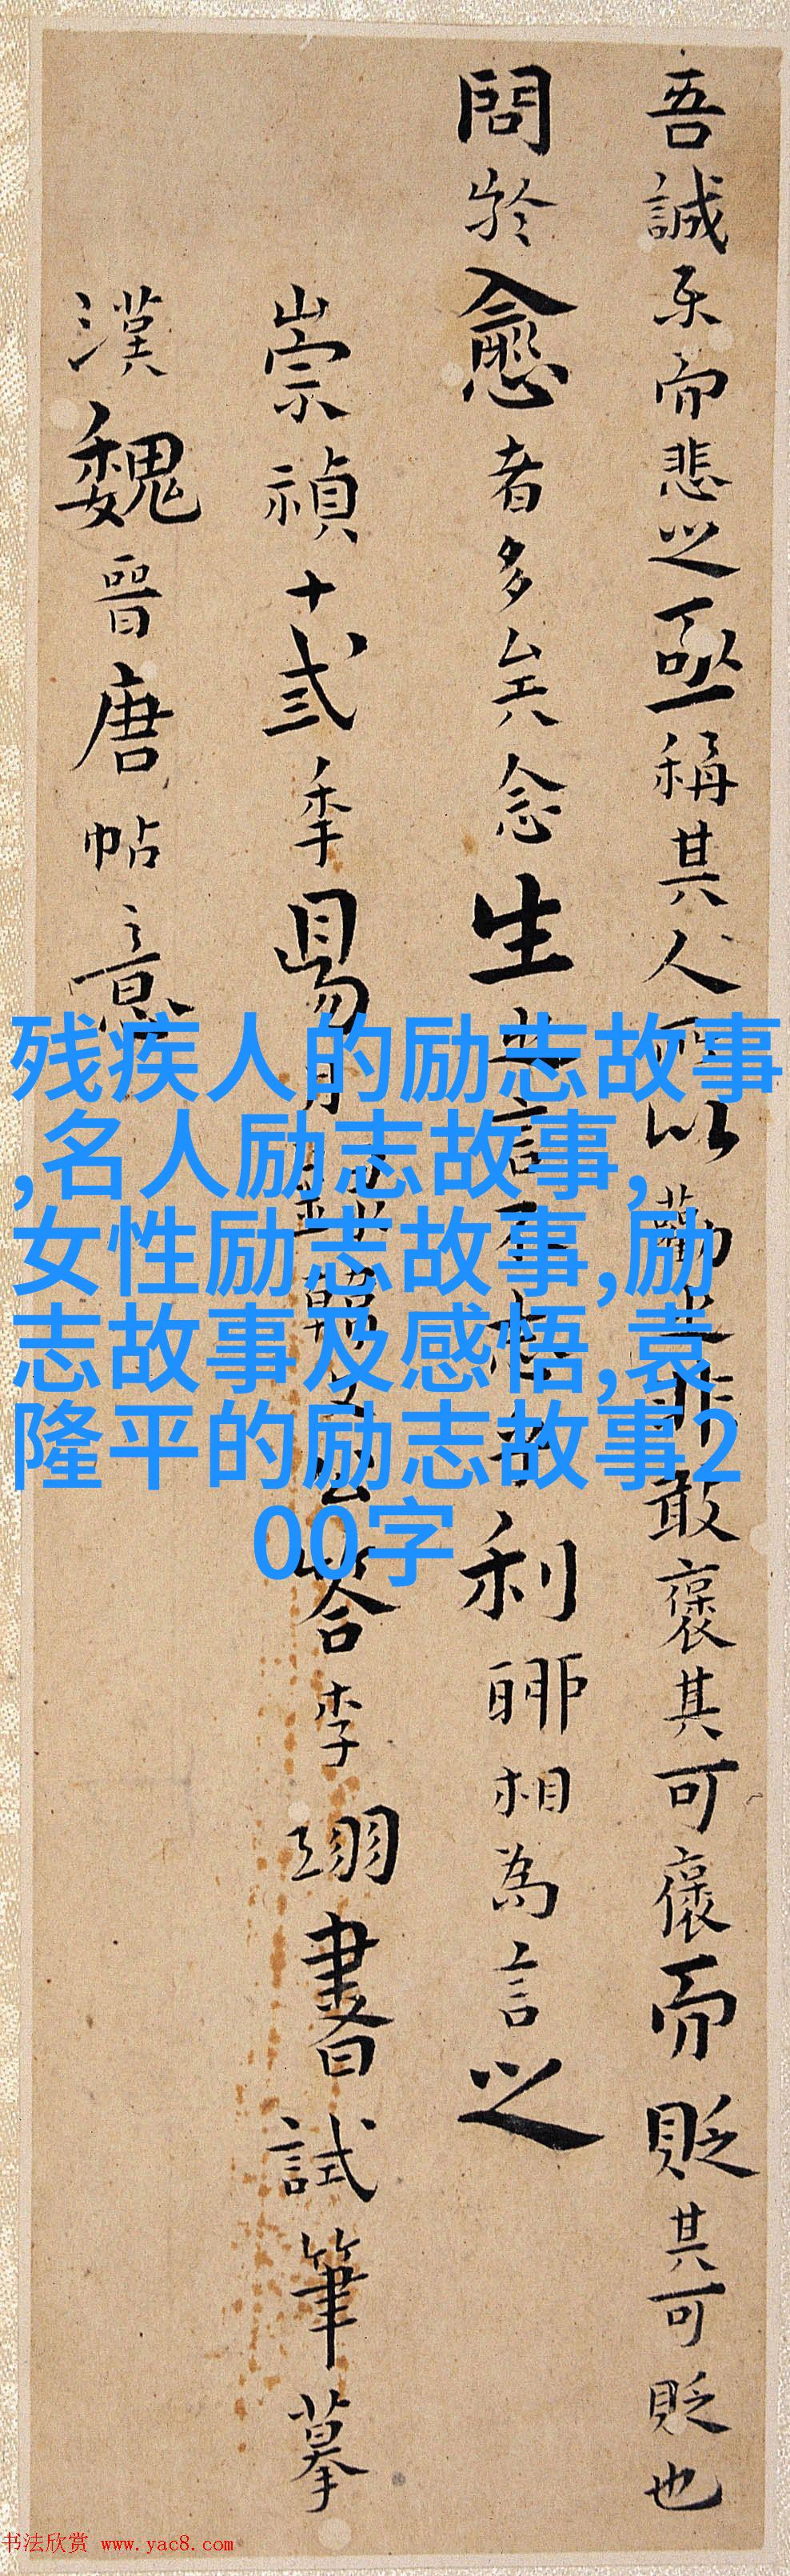 吾誠樂而悲之亟稱其人所以勸之非敢褒其可褒而貶其可貶也
問於愈者多矣念生之言不志乎利聊相為言之
崇禎十弍季昜月臨韓文公答李翊書試筆摹
漢魏晉唐帖意
残疾人的励志故事
,名人励志故事,
女性励志故事,励
志故事及感悟,袁
隆平的励志故事2
00字
书法欣赏 www.yac8.com